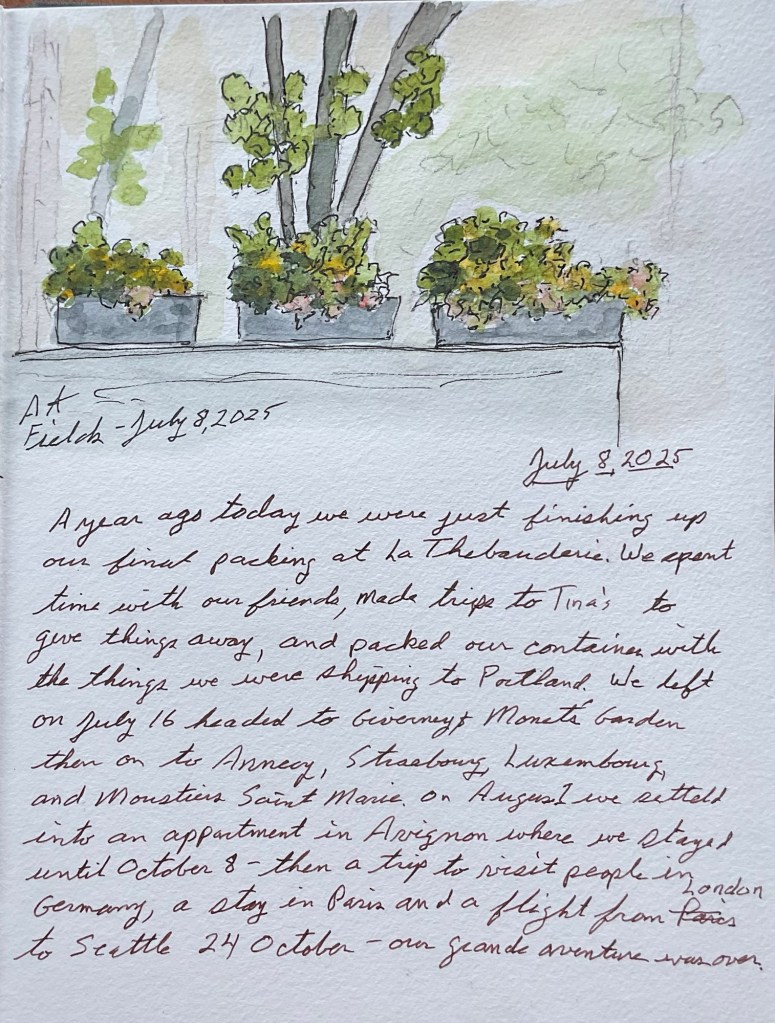 At
Fields - July 8, 2025
July 8, 2025
A year ago today we were just finishing up
our final packing at La Thebauderie. We spent
time with our friends, made trips to Tina's to
give things away, and packed our container with
the things we were shipping to Portland. We left
on July 16 headed to Giverney & Monet's Garden
then on to Annecy, Strasbourg, Luxembourg,
and Moustiers Saint Marie. On August 1 we setteld
into an appartment in Avignon where we stayed
until October 8 - then a trip to visit people in
Germany, a stay in Paris and a flight from ~~Paris~~ London
to Seattle 24 October - our grande aventure was over.